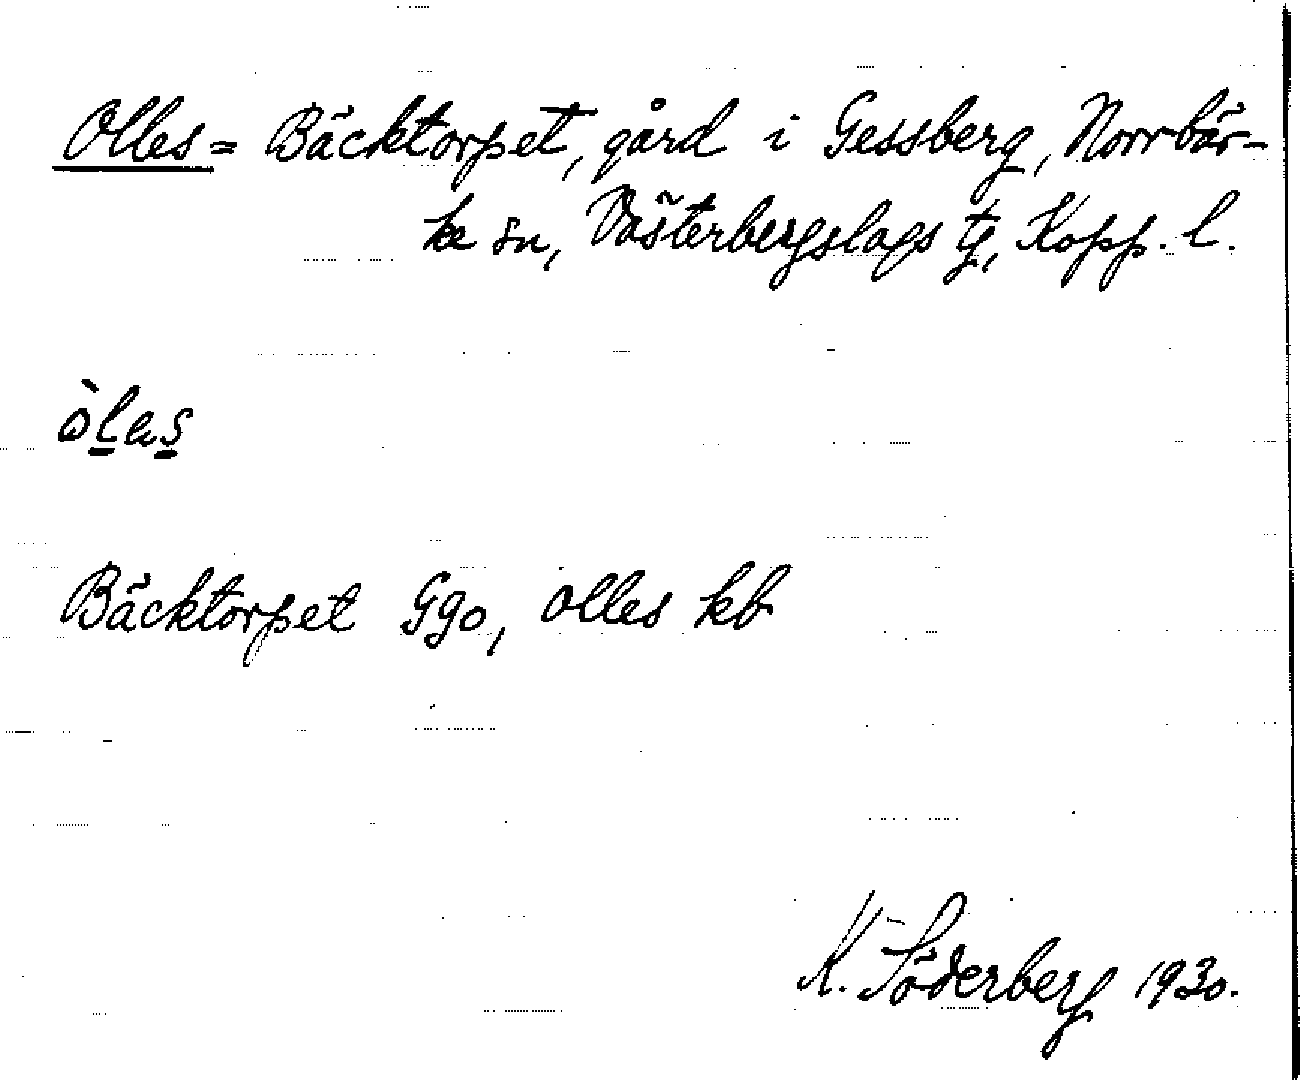 Olles = Bäcktorpet, gård i Gessberg, Norrbär-
ke sn, Västerbergslags tg, Kopp. l.
òlas
Bäcktorpet Ggo, Olles kb
K. Söderberg 1930.